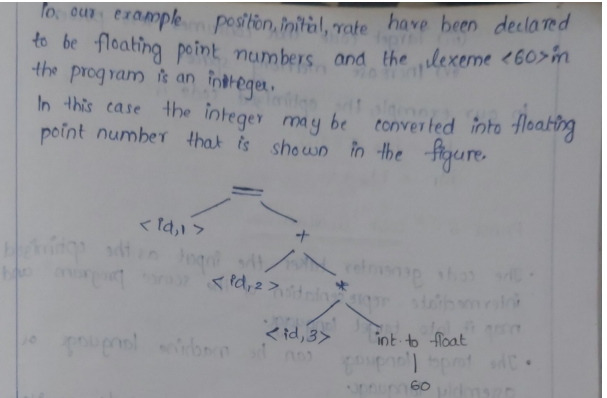 In our example position, initial, rate have been declared
to be floating point numbers and the lexeme <60> in
the program is an integer.
In this case the integer may be converted into floating
point number that is shown in the figure.
=
<id,1> +
<id,2> *
<id,3> int to float
60